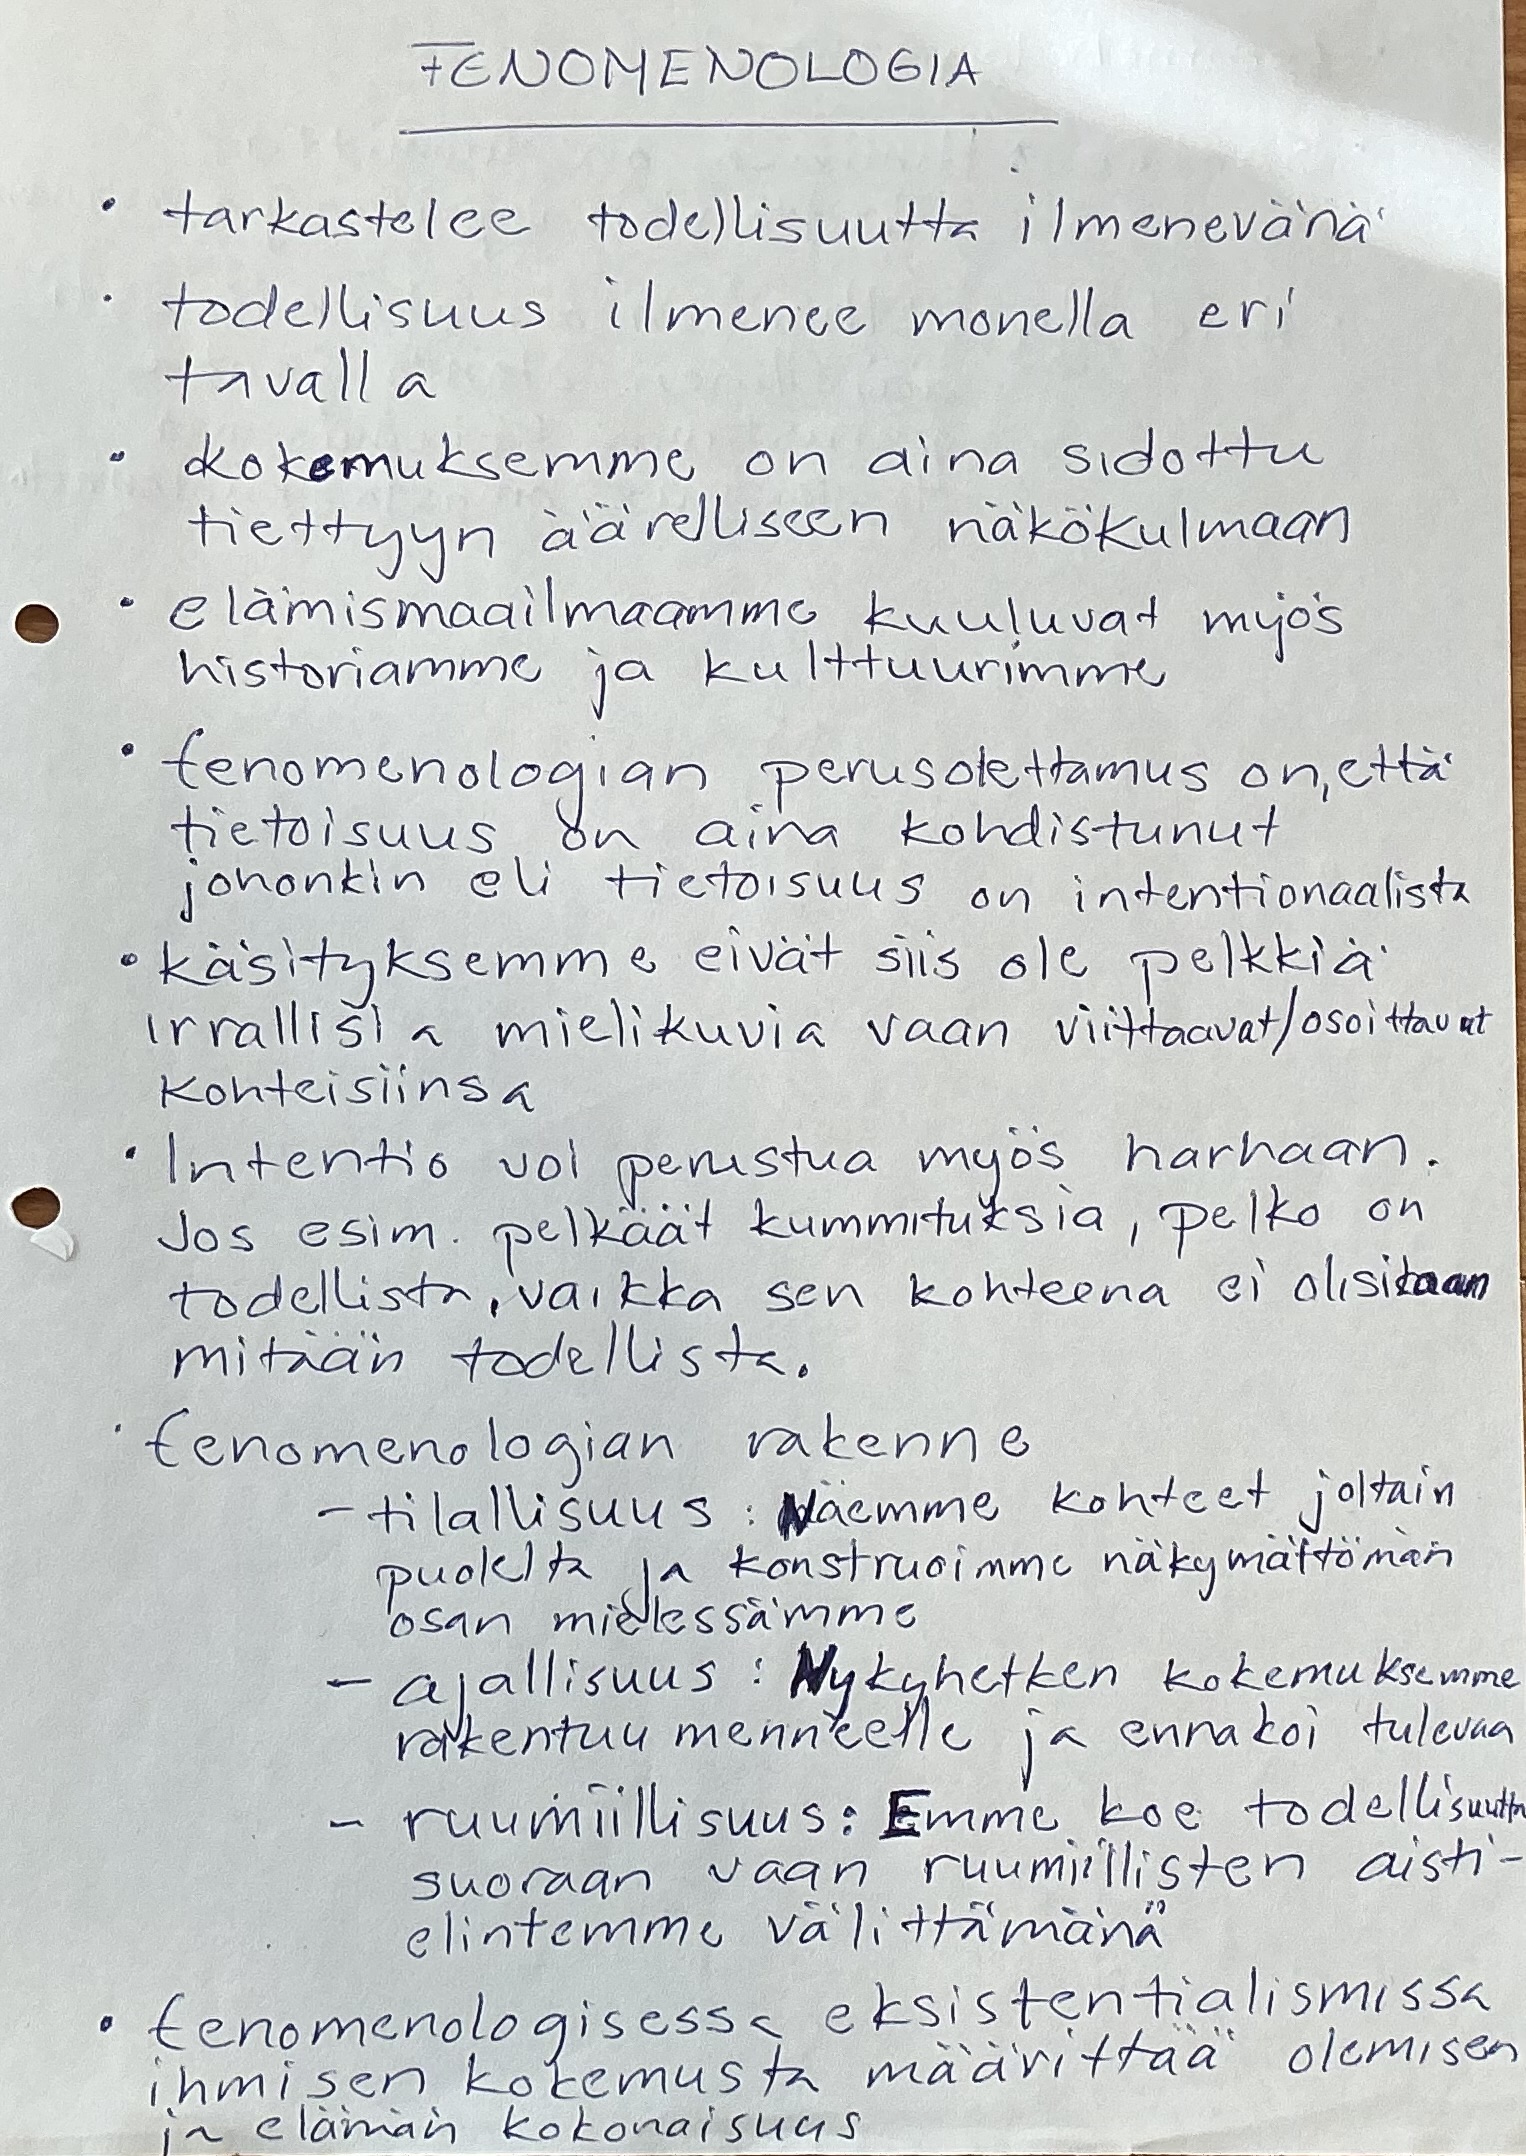 FENOMENOLOGIA
• tarkastelee todellisuutta ilmenevänä
• todellisuus ilmenee monella eri
tavalla
• kokemuksemme on aina sidottu
tiettyyn äärelliseen näkökulmaan
• elämismaailmaamme kuuluvat myös
historiamme ja kulttuurimme
• fenomenologian perusolettamus on, että
tietoisuus on aina kohdistunut
johonkin eli tietoisuus on intentionaalista
• käsityksemme eivät siis ole pelkkiä
irrallisia mielikuvia vaan viittaavat/osoittavat
kohteisiinsa
• Intentio voi perustua myös harhaan.
Jos esim. pelkäät kummituksia, pelko on
todellista, vaikka sen kohteena ei olisikaan
mitään todellista.
• fenomenologian rakenne
- tilallisuus : Näemme kohteet joltain
puolelta ja konstruoimme näkymättömän
osan mielessämme
- ajallisuus : Nykyhetken kokemuksemme
rakentuu menneelle ja ennakoi tulevaa
- ruumiillisuus: Emme koe todellisuutta
suoraan vaan ruumiillisten aisti-
elintemme välittämänä
• fenomenologisessa eksistentialismissa
ihmisen kokemusta määrittää olemisen
ja elämän kokonaisuus